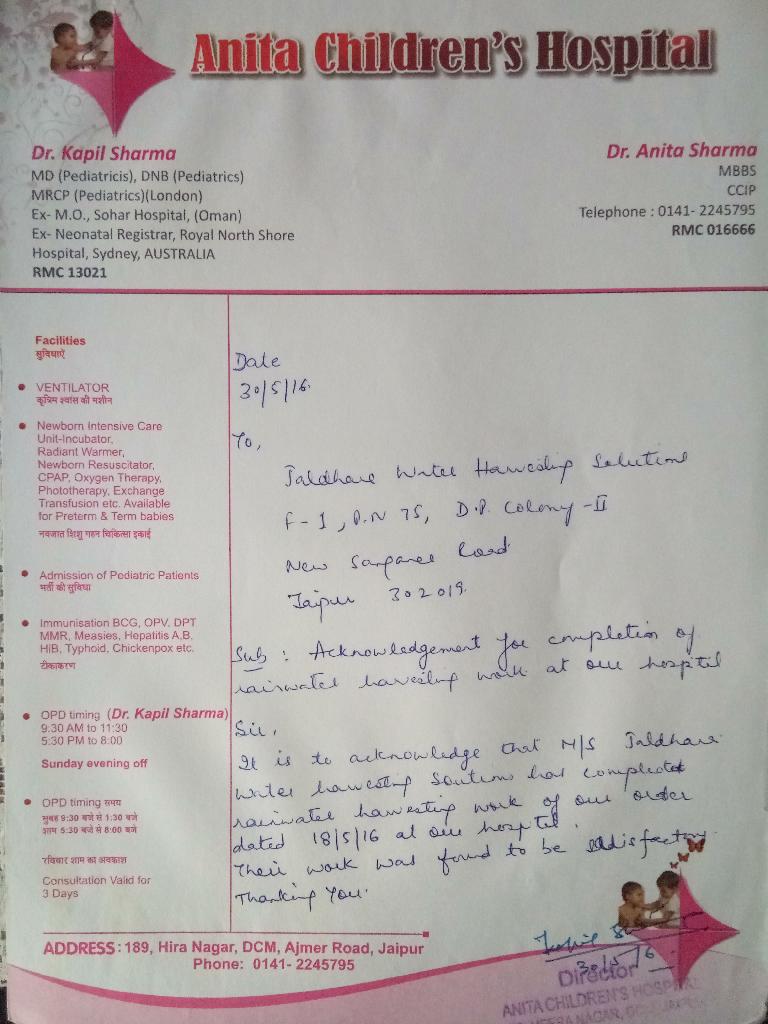 Anita Children's Hospital
Dr. Kapil Sharma
MD (Pediatricis), DNB (Pediatrics)
MRCP (Pediatrics)(London)
Ex- M.O., Sohar Hospital, (Oman)
Ex- Neonatal Registrar, Royal North Shore
Hospital, Sydney, AUSTRALIA
RMC 13021
Dr. Anita Sharma
MBBS
CCIP
Telephone : 0141- 2245795
RMC 016666
Facilities
सुविधाऐं
VENTILATOR
कृत्रिम श्वांस की मशीन
Newborn Intensive Care
Unit-Incubator,
Radiant Warmer,
Newborn Resuscitator,
CPAP, Oxygen Therapy,
Phototherapy, Exchange
Transfusion etc. Available
for Preterm & Term babies
नवजात शिशु गहन चिकित्सा इकाई
Admission of Pediatric Patients
भर्ती की सुविधा
Immunisation BCG, OPV, DPT
MMR, Measies, Hepatitis A,B,
HIB, Typhoid, Chickenpox etc.
टीकाकरण
OPD timing (Dr. Kapil Sharma)
9:30 AM to 11:30
5:30 PM to 8:00
Sunday evening off
OPD timing समय
सुबह 9:30 बजे से 1:30 बजे
शाम 5:30 बजे से 8:00 बजे
रविवार शाम का अवकाश
Consultation Valid for
3 Days
Date
30/5/16.
To,
Jaldhara Water Harvesting Solutions
F-1, P.N 75, D.P. Colony -II
New Sanganer Road
Jaipur 302019.
Sub : Acknowledgement for completion of
rainwater harvesting work at our hospital
Sir,
It is to acknowledge that M/S Jaldhara
water harvesting Soutions has completed
rainwater harvesting work of our order
dated 18/5/16 at our hospital.
Their work was found to be satisfactory.
Thanking You.
30/5/16
Director
ANITA CHILDREN'S HOSPITAL
ADDRESS : 189, Hira Nagar, DCM, Ajmer Road, Jaipur
Phone: 0141- 2245795